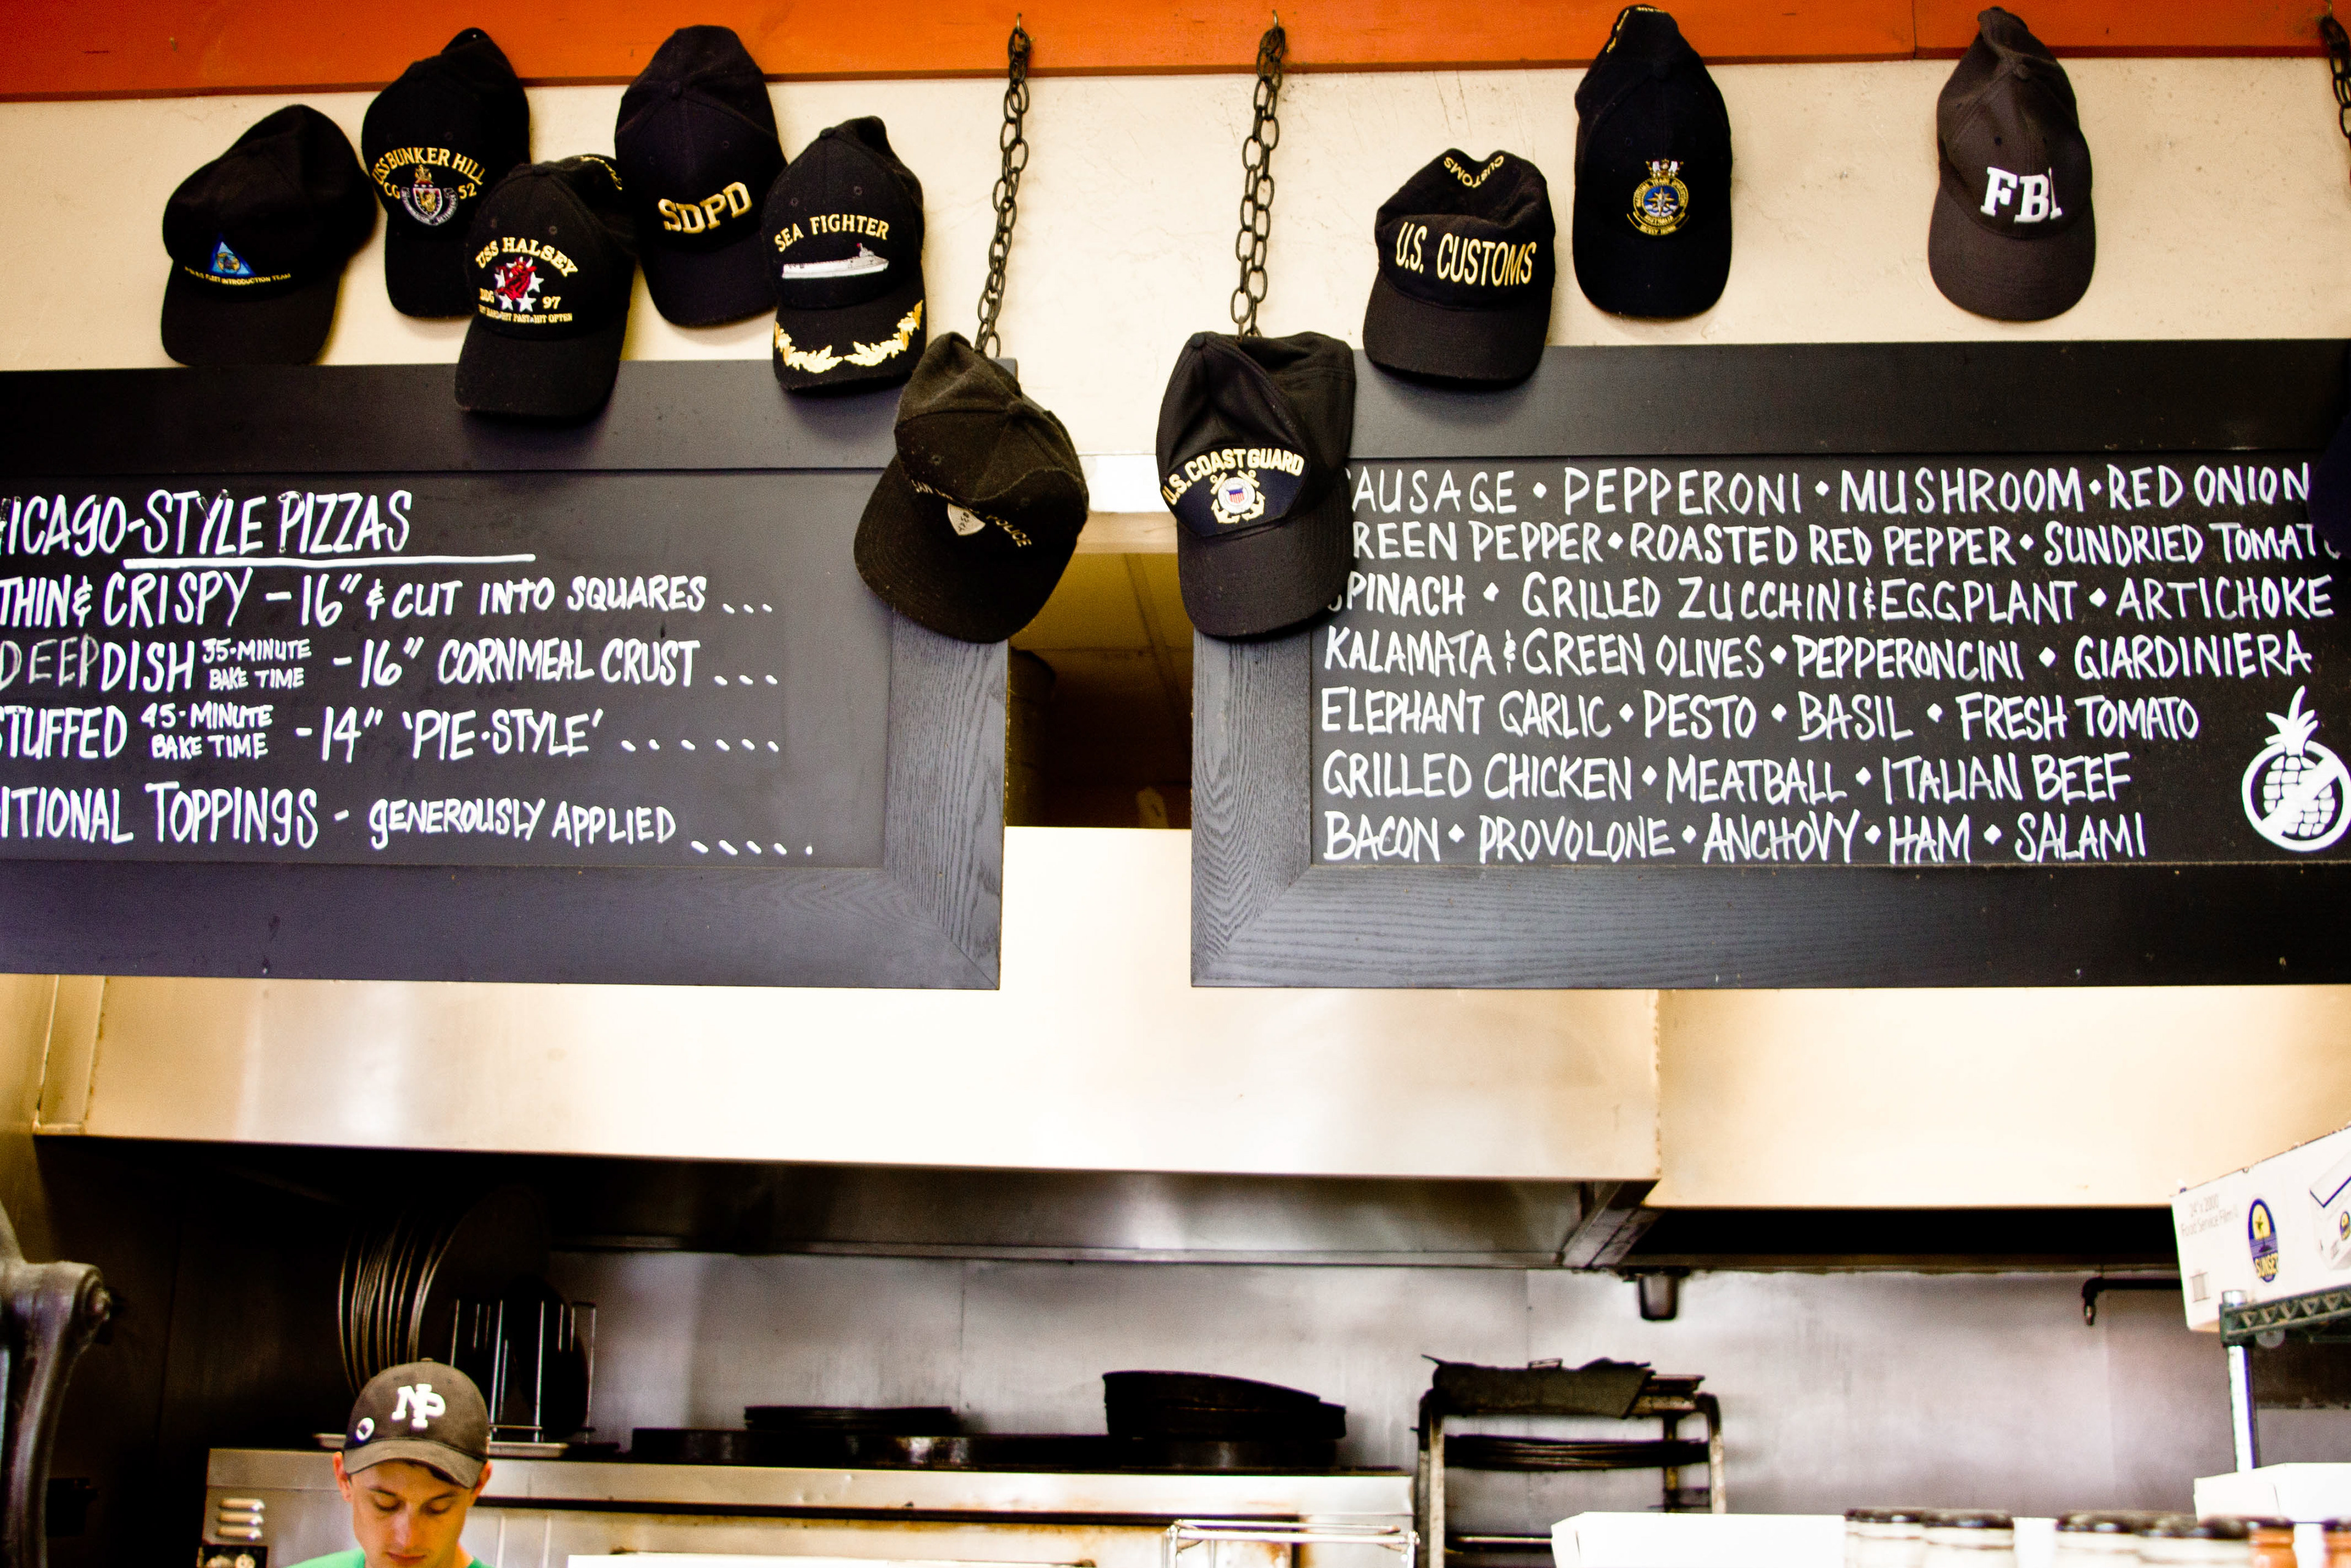 USS BUNKER HILL
CG 52
FLEET INTRODUCTION TEAM
USS HALSEY
DDG 97
HIT HARD•HIT FAST•HIT OFTEN
SDPD
SEA FIGHTER
POLICE
U.S. COAST GUARD
CUSTOMS
U.S. CUSTOMS
AUSTRALIA
FBI
HICAGO-STYLE PIZZAS
THIN & CRISPY - 16" & CUT INTO SQUARES ...
DEEP DISH 35-MINUTE BAKE TIME - 16" CORNMEAL CRUST ...
STUFFED 45-MINUTE BAKE TIME - 14" 'PIE-STYLE' ......
ITIONAL TOPPINGS - GENEROUSLY APPLIED .....
AUSAGE • PEPPERONI • MUSHROOM • RED ONION
REEN PEPPER • ROASTED RED PEPPER • SUNDRIED TOMAT
SPINACH • GRILLED ZUCCHINI & EGGPLANT • ARTICHOKE
KALAMATA & GREEN OLIVES • PEPPERONCINI • GIARDINIERA
ELEPHANT GARLIC • PESTO • BASIL • FRESH TOMATO
GRILLED CHICKEN • MEATBALL • ITALIAN BEEF
BACON • PROVOLONE • ANCHOVY • HAM • SALAMI
NP
Food Service Film
SUNSET